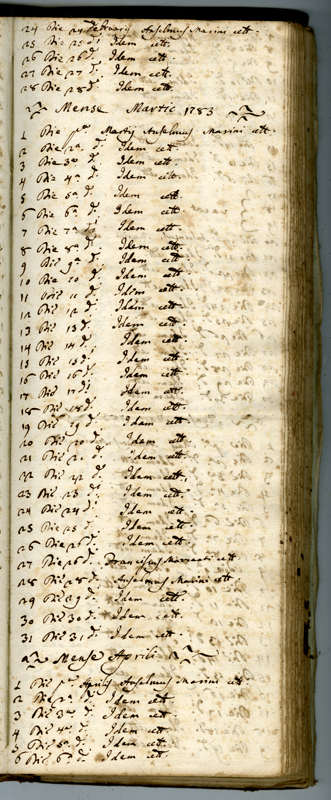 24 Die 24 februarij Anselmus Marini cett.
25 Die 25 d.ͭ Idem cett.
26 Die 26 d.ͭ Idem cett.
27 Die 27 d.ͭ Idem cett.
28 Die 28 d.ͭ Idem cett.
Mense Martic 1783
1 Die p.ͫᵃ Martij Anselmus Marini cett.
2 Die 2ᵃ d.ͭ Idem cett.
3 Die 3ᵃ d.ͭ Idem cett.
4 Die 4ᵃ d.ͭ Idem cett.
5 Die 5ᵃ d.ͭ Idem cett.
6 Die 6ᵃ d.ͭ Idem cett.
7 Die 7ᵃ d.ͭ Idem cett.
8 Die 8ᵃ d.ͭ Idem cett.
9 Die 9ᵃ d.ͭ Idem cett.
10 Die 10 d.ͭ Idem cett.
11 Die 11 d.ͭ Idem cett.
12 Die 12 d.ͭ Idem cett.
13 Die 13 d.ͭ Idem cett.
14 Die 14 d.ͭ Idem cett.
15 Die 15 d.ͭ Idem cett.
16 Die 16 d.ͭ Idem cett.
17 Die 17 d.ͭ Idem cett.
18 Die 18 d.ͭ Idem cett.
19 Die 19 d.ͭ Idem cett.
20 Die 20 d.ͭ Idem cett.
21 Die 21 d.ͭ Idem cett.
22 Die 22 d.ͭ Idem cett.
23 Die 23 d.ͭ Idem cett.
24 Die 24 d.ͭ Idem cett.
25 Die 25 d.ͭ Idem cett.
26 Die 26 d.ͭ Idem cett.
27 Die 26 d.ͭ Franciscus cett.
28 Die 28 d.ͭ Anselmus Marini cett.
29 Die 29 d.ͭ Idem cett.
30 Die 30 d.ͭ Idem cett.
31 Die 31 d.ͭ Idem cett.
Mense Aprili
1 Die p.ͫᵃ Aprilij Anselmus Marini cett.
2 Die 2ᵃ d.ͭ Idem cett.
3 Die 3ᵃ d.ͭ Idem cett.
4 Die 4ᵃ d.ͭ Idem cett.
5 Die 5ᵃ d.ͭ Idem cett.
6 Die 6ᵃ d.ͭ Idem cett.